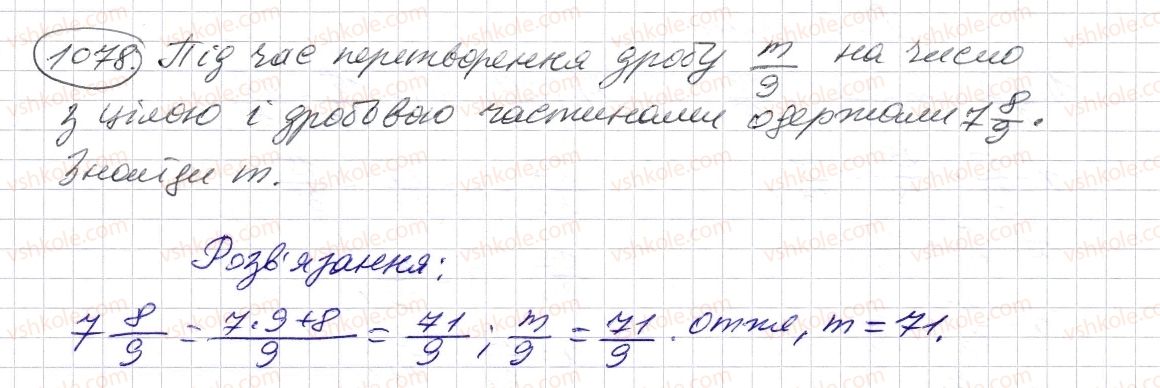 1078. Під час перетворення дробу m/9 на число
з цілою і дробовою частинами одержали 7 8/9.
Знайди m.
Розв'язання:
7 8/9 = 7·9+8/9 = 71/9; m/9 = 71/9. отже, m = 71.